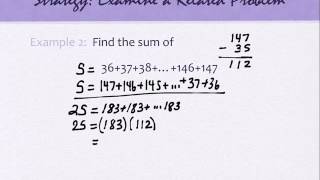 Strategy: Examine a Related Problem
Example 2: Find the sum of
147
- 35
112
S = 36+37+38+...+146+147
S = 147+146+145+...+37+36
2S = 183+183+...183
2S = (183)(112)
=